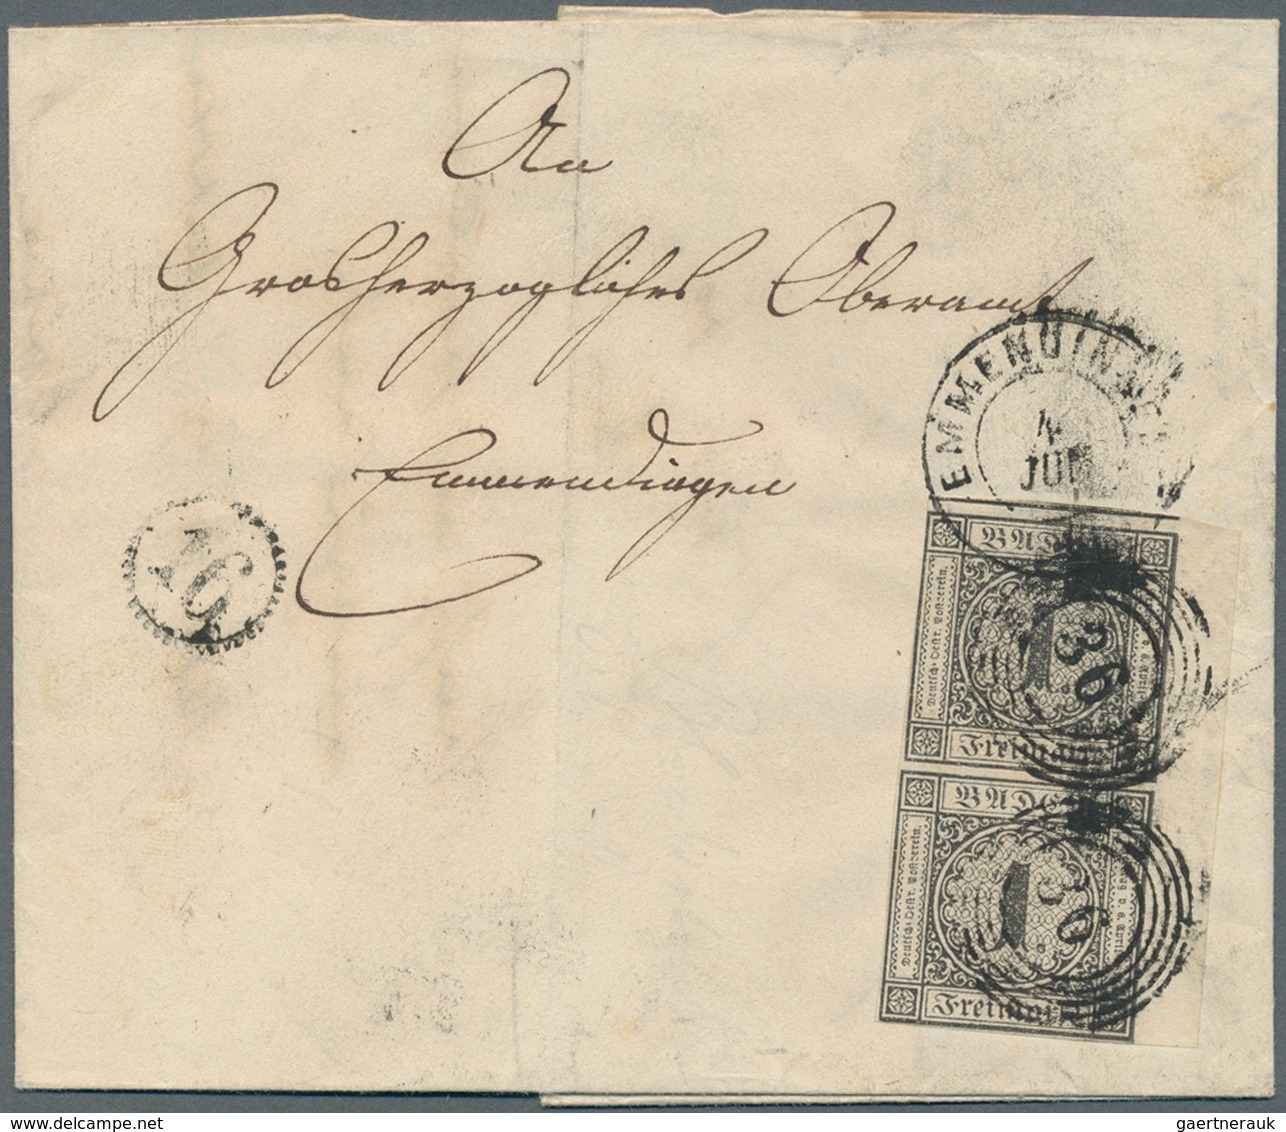 An
Grosherzogliches Oberamt
Emmendingen
16
EMMENDINGEN
4
JUN
BADEN
Deutsch-Oestr. Postverein.
1.
36
Freimarke
BADEN
Deutsch-Oestr. Postverein.
1.
36
Freimarke
delcampe.net
gaertnerauk